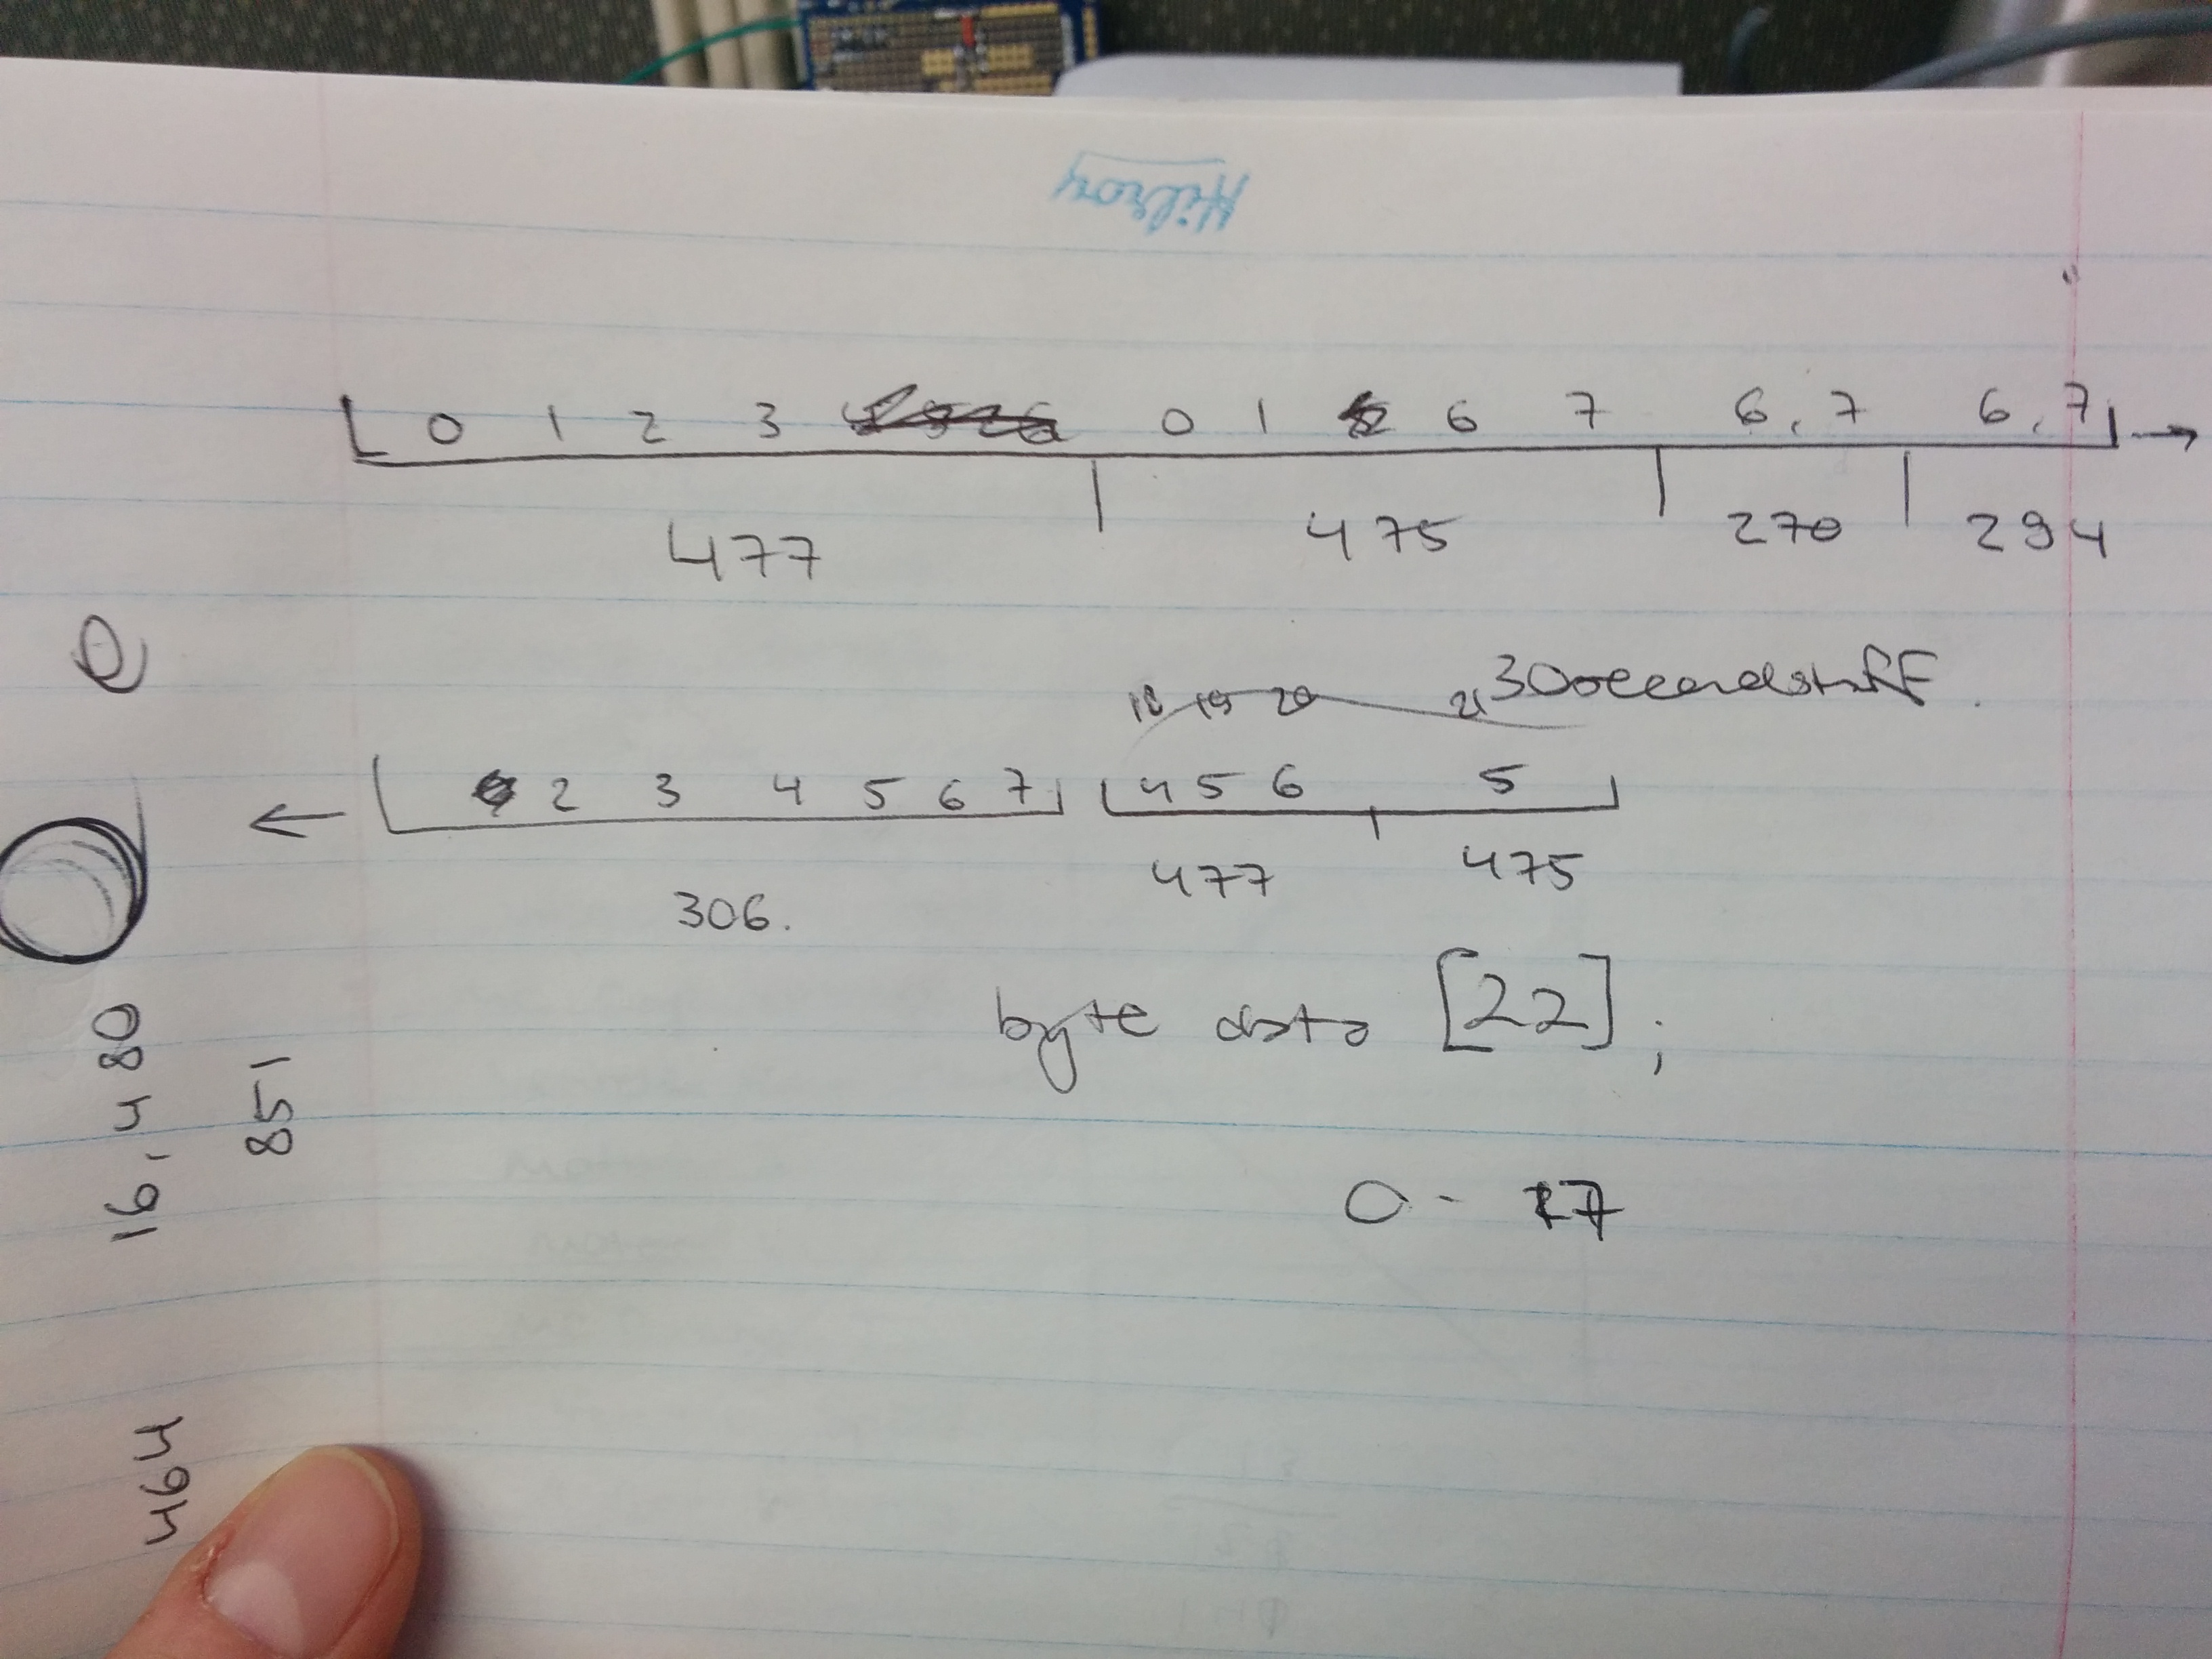 Hilroy
0 1 2 3 0 1 6 7 6, 7 6, 7
477 475 270 294
18 19 20 21 30secondstuff.
2 3 4 5 6 7 4 5 6 5
306. 477 475
byte data [22];
0 - 17
16, 480
851
464